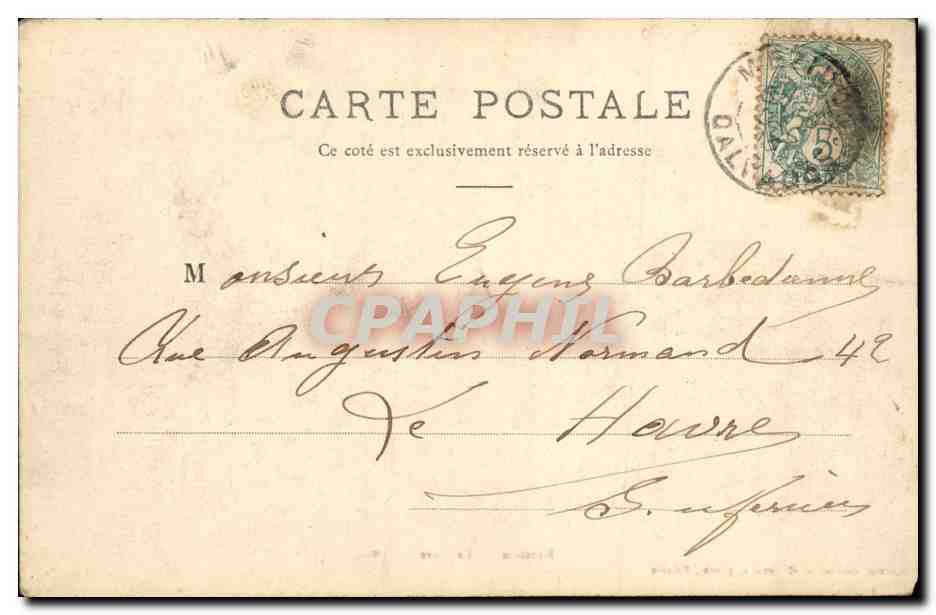 CARTE POSTALE
Ce coté est exclusivement réservé à l'adresse
5c
Monsieur Eugene Barbedienne
CPAPHIL
Rue Augustin Normand 42
Le Havre
S. inferieure